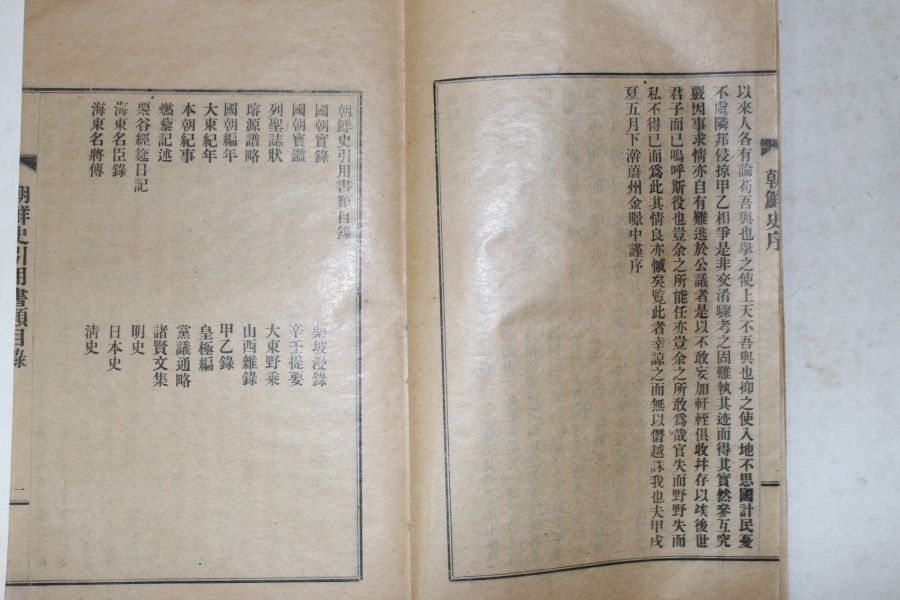 朝鮮史序
以來人各有論苟吾與也擧之使上天不吾與也抑之使入地不思國計民憂
不虞隣邦侵掠甲乙相爭是非交淆驟考之固難執其迹而得其實然參互究
覈因事求情亦自有難逃於公議者是以不敢妄加軒輊俱收幷存以竢後世
君子而已嗚呼斯役也豈余之所能任亦豈余之所敢爲哉官失而野野失而
私不得已而爲此其情良亦慽矣覽此者幸諒之而無以僭越誅我也夫甲戌
夏五月下澣蔚州金㬇中謹序
朝鮮史引用書類目錄
國朝實錄
國朝寶鑑
列聖誌狀
璿源譜略
國朝編年
大東紀年
本朝紀事
燃藜記述
栗谷經筵日記
海東名臣錄
海東名將傳
坡漫錄
辛壬提要
大東野乘
山西雜錄
甲乙錄
皇極編
黨議通略
諸賢文集
明史
日本史
淸史
朝鮮史引用書類目錄
一